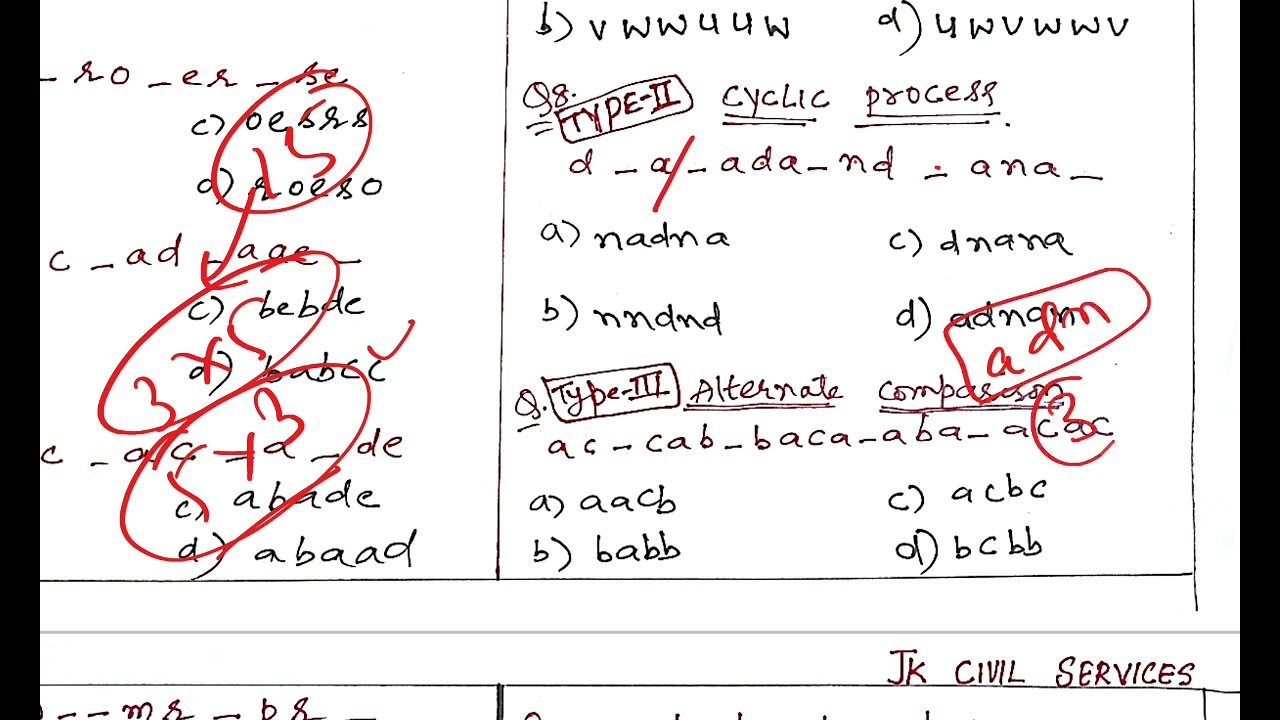 _ r o _ e r _ s e
c) o e s r s
d) r o e s o
c _ a d _ a a e _
c) b e b d e
d) b a b c c
3
c _ a _ d e
c) a b a d e
d) a b a a d
b) v w w u u w
d) u w v w w v
Q8. TYPE-II CYCLIC PROCESS.
d _ a _ a d a _ n d _ a n a _
a) n a d n a
c) d n a n a
b) n n d n d
d) a d n a n
a d n
Q. Type-III Alternate Comparison
a c _ c a b _ b a c a _ a b a _ a c a c
3
a) a a c b
c) a c b c
b) b a b b
d) b c b b
JK CIVIL SERVICES
_ _ m r _ b r _